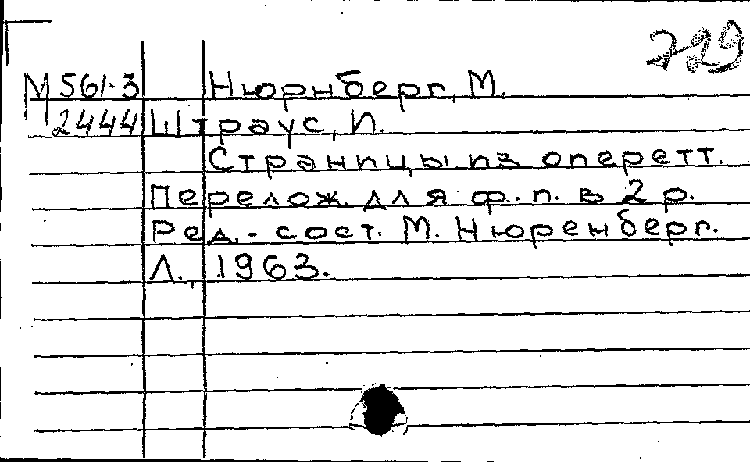 729
М561-3 Нюрнберг, М.
2444 Штраус, И.
Страницы из оперетт.
Перелож. для ф.п. в 2 р.
Ред.-сост. М. Нюренберг.
Л., 1963.